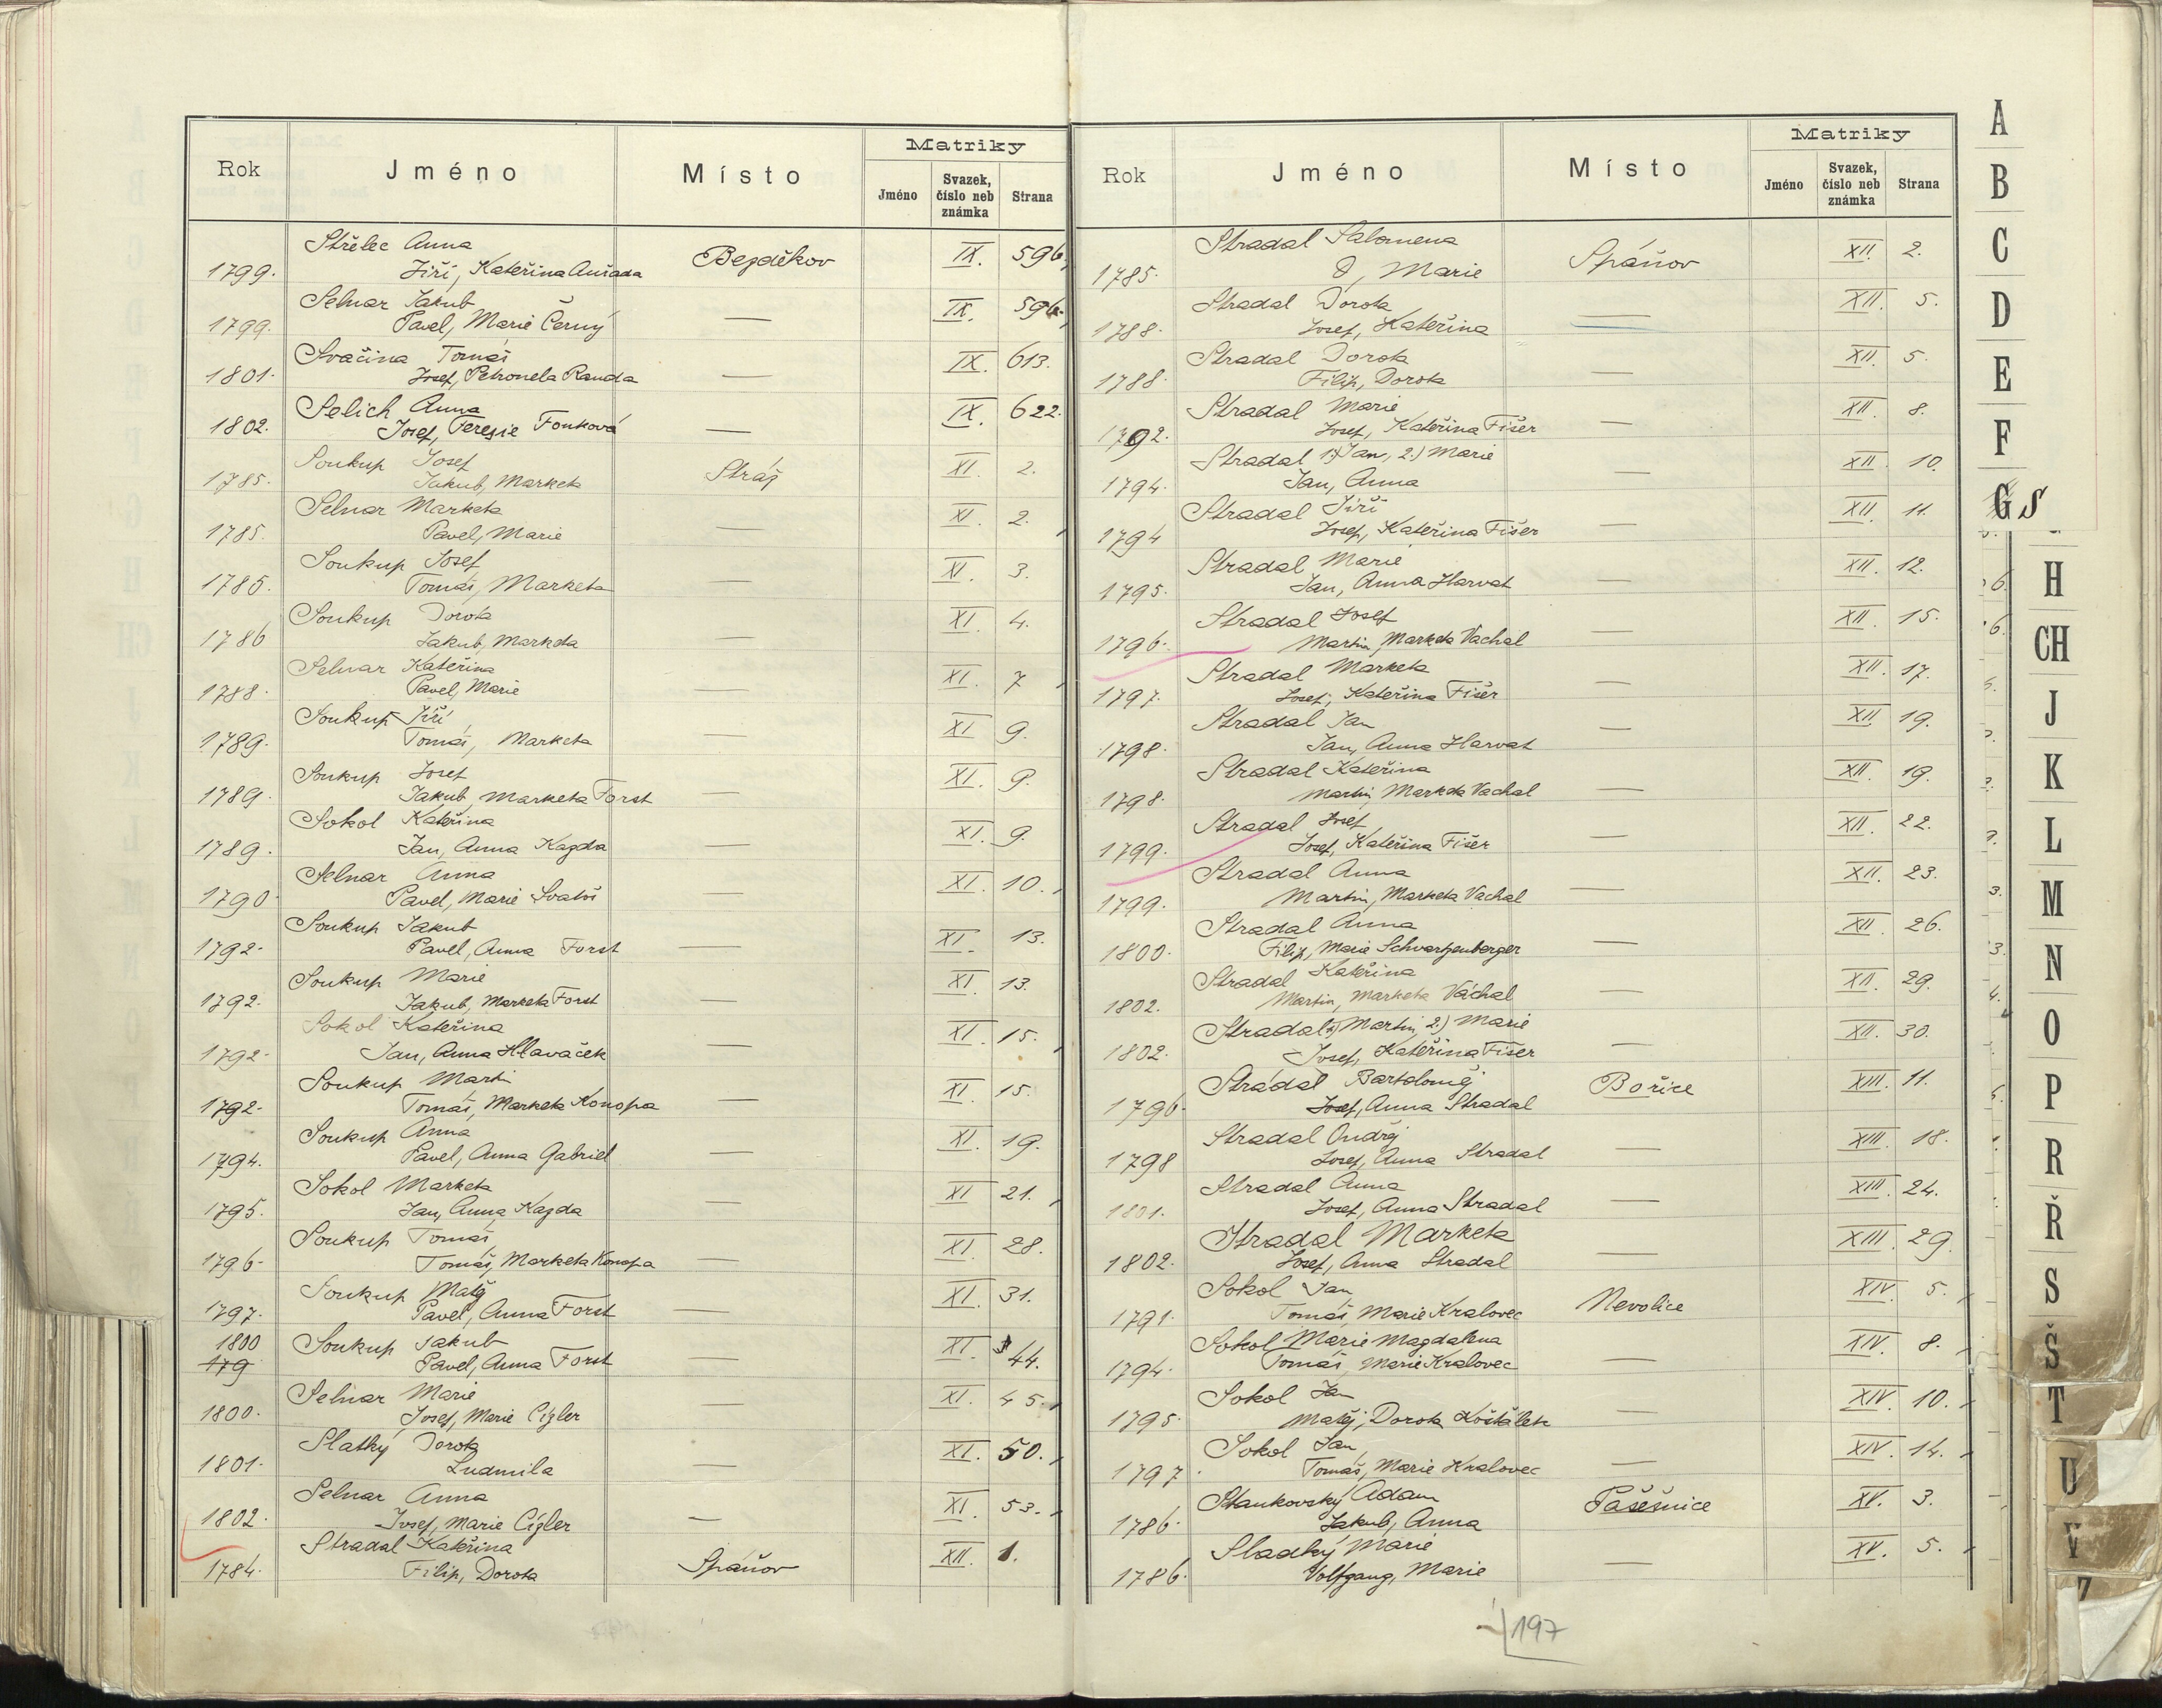 Rok Jméno Místo Matriky
Jméno Svazek, číslo neb známka Strana
Střelec Anna
1799. Jiří, Kateřina Bezděkov IX. 596.
Selnar Jakub
1799. Pavel, Marie Černý — IX. 596.
Svačina Tomáš
1801. Josef, Petronela Randa — IX. 613.
Selich Anna
1802. Josef, Terezie Fouková — IX. 622.
Soukup Josef
1785. Jakub, Marketa Stráž XI. 2.
Selnar Marketa
1785. Pavel, Marie — XI. 2.
Soukup Josef
1785. Tomáš, Marketa — XI. 3.
Soukup Dorota
1786 Jakub, Marketa — XI. 4.
Selnar Kateřina
1788. Pavel, Marie — XI. 7
Soukup Jiří
1789. Tomáš, Marketa — XI. 9.
Soukup Josef
1789. Jakub, Marketa Forst — XI. 9.
Sokol Kateřina
1789. Jan, Anna Kazda — XI. 9.
Selnar Anna
1790 Pavel, Marie Svatoš — XI. 10.
Soukup Jakub
1792. Pavel, Anna Forst — XI. 13.
Soukup Marie
1792. Jakub, Marketa Forst — XI. 13.
Sokol Kateřina
1792. Jan, Anna Hlaváček — XI. 15.
Soukup Martin
1792. Tomáš, Marketa Konopa — XI. 15.
Soukup Anna
1794. Pavel, Anna Gabriel — XI. 19.
Sokol Marketa
1795. Jan, Anna Kazda — XI 21.
Soukup Tomáš
1796. Tomáš, Marketa Konopa — XI. 28.
Soukup Matěj
1797. Pavel, Anna Forst — XI. 31.
1800 Soukup Jakub
179 Pavel, Anna Forst — XI. 44.
Selnar Marie
1800. Josef, Marie Cízler — XI. 45.
Slatký Dorota
1801. Ludmila — XI. 50.
Selnar Anna
1802. Josef, Marie Cízler — XI. 53.
Stradal Kateřina
1784. Filip, Dorota Spáňov XII. 1.
Rok Jméno Místo Matriky
Jméno Svazek, číslo neb známka Strana
Stradal Salomena
1785. Marie Spáňov XII. 2.
Stradal Dorota
1788. Josef, Kateřina — XII. 5.
Stradal Dorota
1788. Filip, Dorota — XII. 5.
Stradal Marie
1792. Josef, Kateřina Fišer — XII. 8.
Stradal 1.) Jan, 2.) Marie
1794. Jan, Anna — XII. 10.
Stradal Jiří
1794 Josef, Kateřina Fišer — XII. 11.
Stradal Marie
1795. Jan, Anna Harvat — XII. 12.
Stradal Josef
1796. Martin, Marketa Vachal — XII. 15.
Stradal Marketa
1797. Josef, Kateřina Fišer — XII. 17.
Stradal Jan
1798. Jan, Anna Harvat — XII 19.
Stradal Kateřina
1798. Martin, Marketa Vachal — XII. 19.
Stradal Josef
1799. Josef, Kateřina Fišer — XII. 22.
Stradal Anna
1799. Martin, Marketa Vachal — XII. 23.
Stradal Anna
1800. Filip, Marie Schvarzenberger — XII. 26.
Stradal Kateřina
1802. Martin, Marketa Váchal — XII. 29.
Stradal 1.) Martin, 2.) Marie
1802. Josef, Kateřina Fišer — XII. 30.
Stradal Bartoloměj
1796. Josef, Anna Stradal Bořice XIII. 11.
Stradal Ondřej
1798 Josef, Anna Stradal — XIII. 18.
Stradal Anna
1801. Josef, Anna Stradal — XIII. 24.
Stradal Marketa
1802. Josef, Anna Stradal — XIII. 29.
Sokol Jan
1791. Tomáš, Marie Kralovec Nevolice XIV. 5.
Sokol Marie Magdalena
1794. Tomáš, Marie Kralovec — XIV. 8.
Sokol Jan
1795. Matěj, Dorota — XIV. 10.
Sokol Jan
1797. Tomáš, Marie Kralovec — XIV. 14.
Stankovský Adam
1786. Jakub, Anna Pasešnice XV. 3.
Sladký Marie
1786. Volfgang, Marie — XV. 5.
197
A
B
C
D
E
F
G S
H
CH
J
K
L
M
N
O
P
R
Ř
S
Š
T
U
V
Z